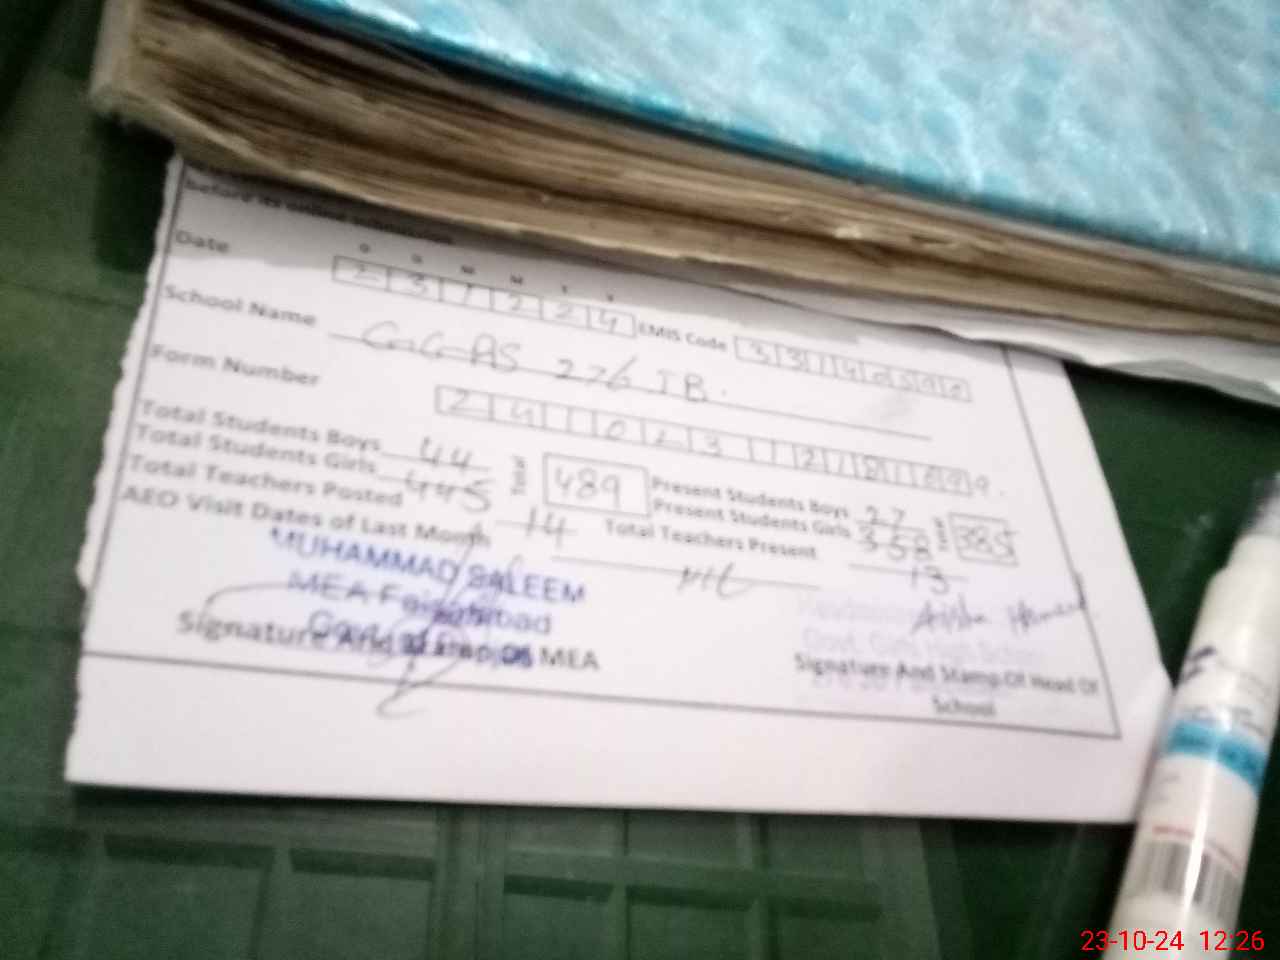 before its online submission.
D D M M Y Y
Date 2 3 1 2 2 4 EMIS Code 3 3 1 4 0 5 9 0
School Name GGPS 276 JB.
Form Number 2 4 1 0 2 3 1 2 8 6 9 9.
Total Students Boys 44 Total 489 Present Students Boys 27
Total Students Girls 445 Present Students Girls 358 385
Total Teachers Posted 14 Total Teachers Present 13
AEO Visit Dates of Last Month Nil
MUHAMMAD SALEEM
MEA Faisalabad
Signature And Stamp Of MEA
Signature And Stamp Of Head Of
School
23-10-24 12:26